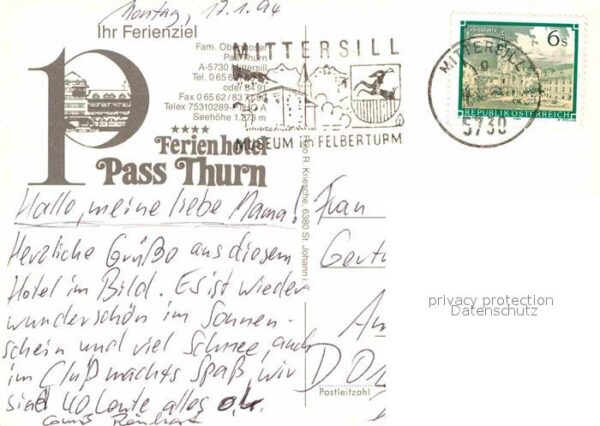 Montag, 17.1.94
Ihr Ferienziel
Fam.
Pass Thurn
A-5730 Mittersill
Tel. 0 65 62
oder 84 91
Fax 0 65 62 / 83
Telex 75310289-
Seehöhe 1.273 m
****
Ferienhotel
Pass Thurn
MITTERSILL
MUSEUM im FELBERTURM
MITTERSILL
5730
6 S
REPUBLIK ÖSTERREICH
R. Kriesche, 6380 St. Johann i
Hallo, meine liebe Mama!
Herzliche Grüße aus diesem
Hotel im Bild. Es ist wieder
wunderschön im Sonnen-
schein und viel Schnee, auch
im Club machts Spaß, wir
sind 40 Leute, alles o.k.
Reinhart
Frau
Gertr
Am
DO
Postleitzahl
privacy protection
Datenschutz